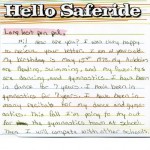 Hello Saferide
Long lost pen pal,
Hi! How are you? I was very happy
to receive your letter. I am 10 years old.
My birthday is May 15th 1978. My hobbies
are reading, swimming, and my favorites
are dancing, and gymnastics. I have been
in dance for 7 years. I have been in
gymnastics for 7 years. I have been in
many recitals for my dance and
gymnastics. This fall I'm going to try out
for the gymnastics team at school.
Then I will compete with other schools.